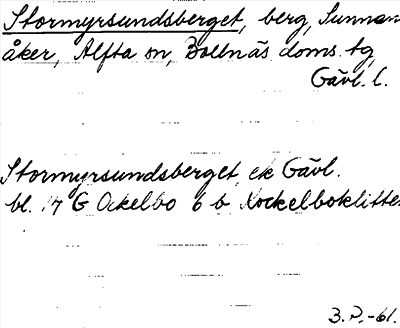 Stormyrsundsberget, berg, Sunnan
åker, Alfta sn, Bollnäs doms. tg,
Gävl. l.
Stormyrsundsberget, ek Gävl.
bl. 17 G Ockelbo 6 b Kockelboklitte
3.P.-61.